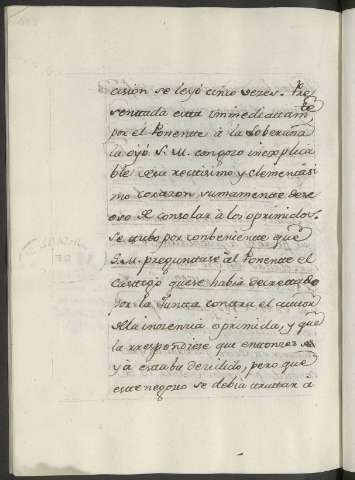 cision se leyó cinco vezes. Pre
sentada esta immediatamte
por el Ponente à la Soberana
la oyó S. M. con gozo inexplica
ble de su rectisimo y clementisi
mo corazon, sumamente dese
oso de consolar à los oprimidos.
Se tubo por conbeniente que
S. M. preguntase al Ponente el
castigo que se habia decretado
por la Junta contra el autor
de la inocencia oprimida, y que
la rrespondiese que entonzes
yà estaba decidido, pero que
este negocio se debia tratar à